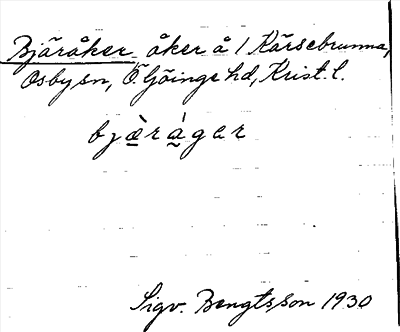 Bjäråker, åker å 1 Kärsebrunna,
Osby sn, Ö. Göinge hd, Krist. l.
bjæ̀rág̬er
Sigv. Bengtsson 1930